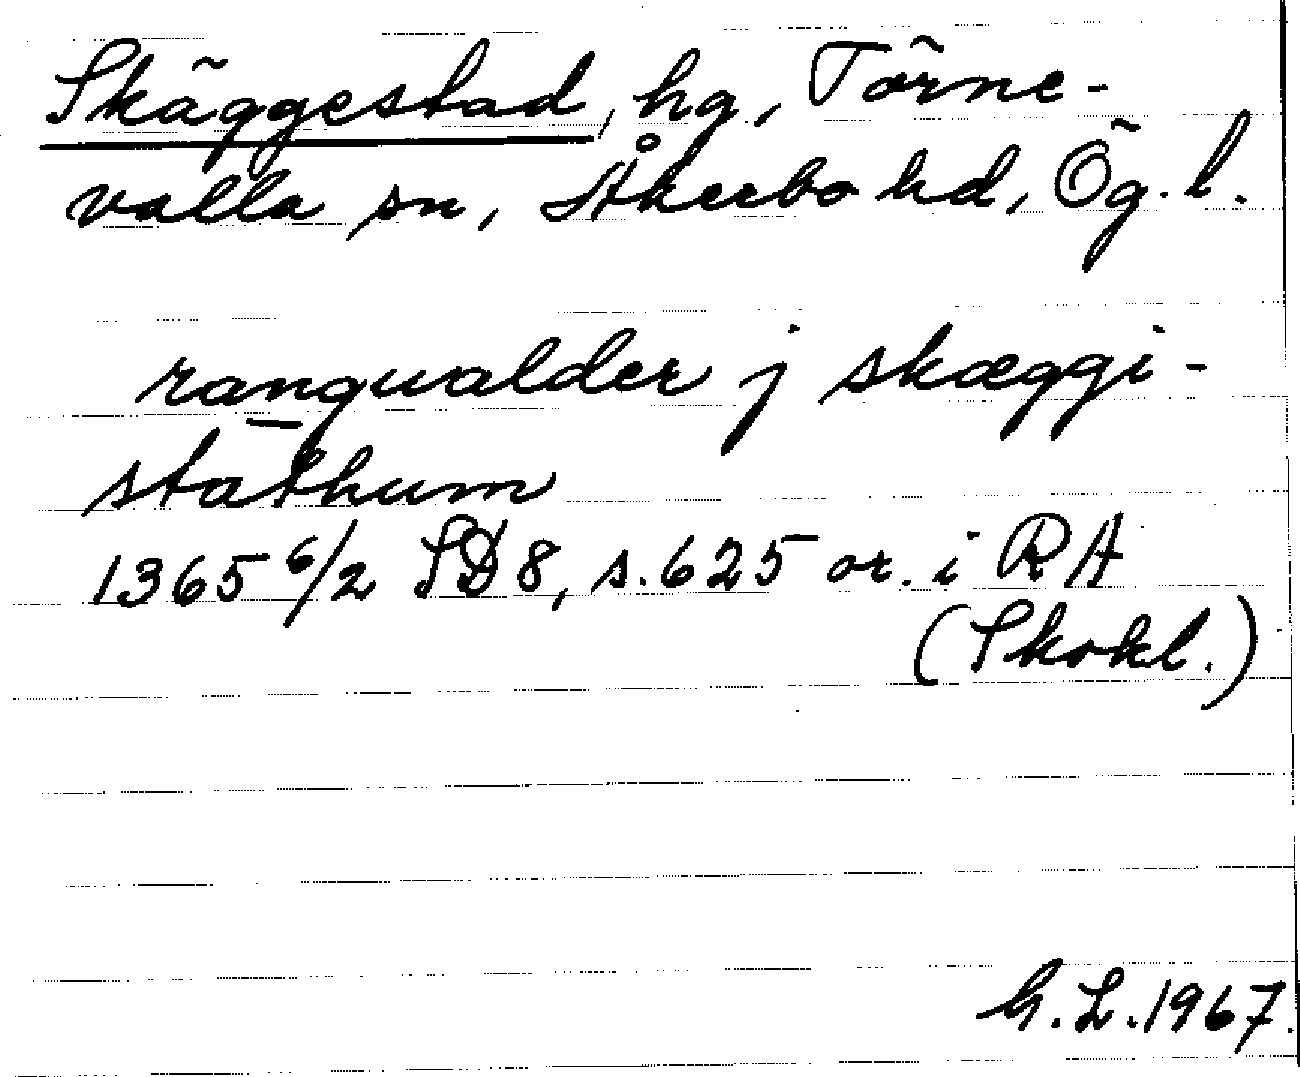 Skäggestad, hg, Törne-
valla sn, Åkerbo hd, Ög. l.
rangualder j skæggi-
stathum
1365 6/2 SD 8, s. 625 or. i RA
(Skokl.)
G. L. 1967.